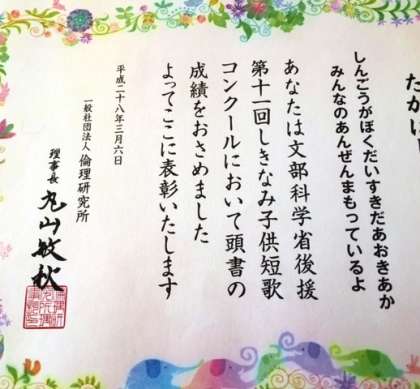 しんごうがぼくだいすきだあおきあか
みんなのあんぜんまもっているよ
あなたは文部科学省後援
第十一回しきなみ子供短歌
コンクールにおいて頭書の
成績をおさめました
よってここに表彰いたします
平成二十八年三月六日
一般社団法人倫理研究所
理事長 丸山敏秋